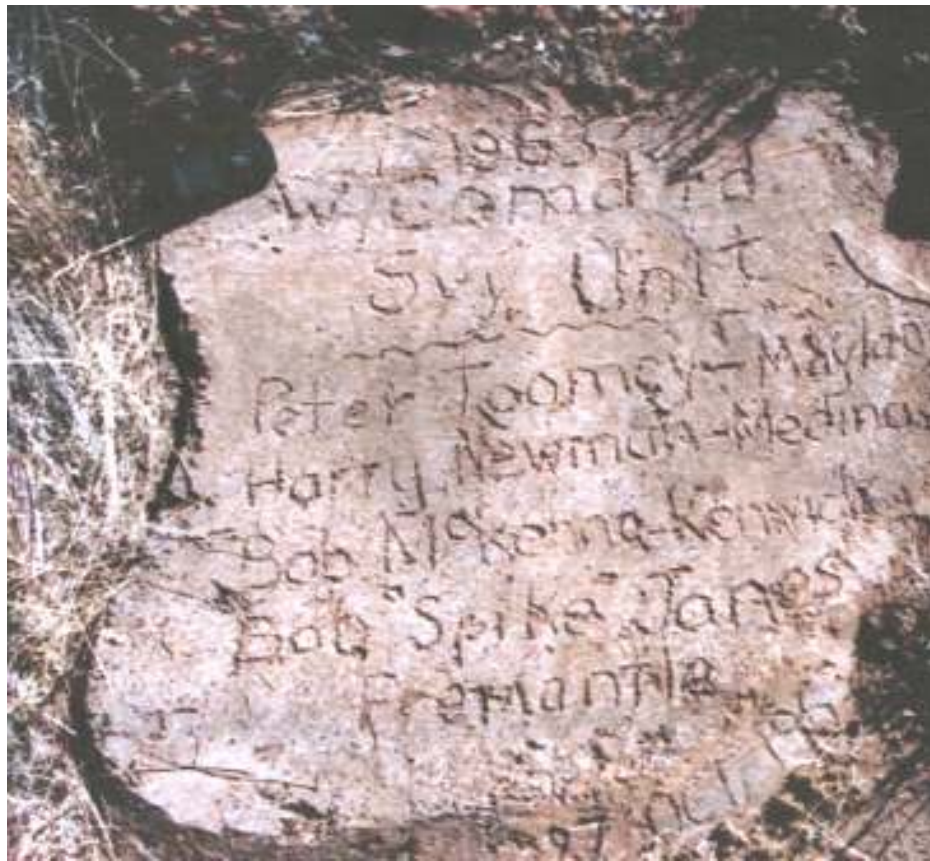 1963
W Comd Fd
Svy Unit
Peter Toomey - Maylands
Harry Newman - Medina
Bob McKenna - Kenwick
Bob "Spike" Jones
Fremantle